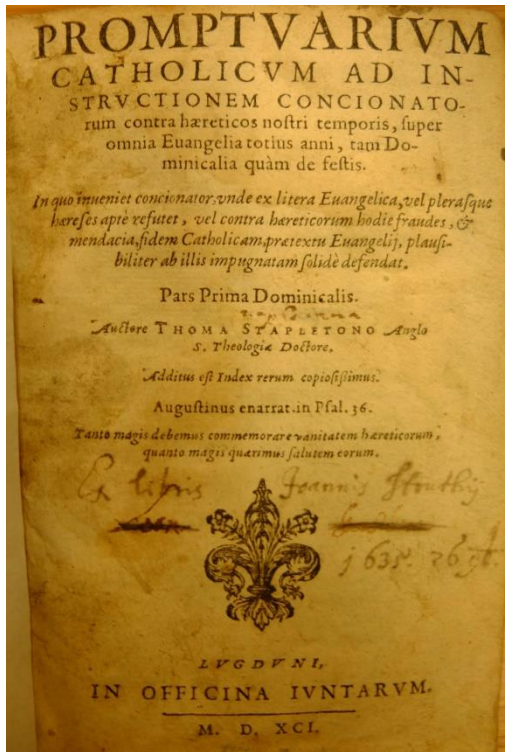 PROMPTVARIVM
CATHOLICVM AD IN-
STRVCTIONEM CONCIONATO-
rum contra hæreticos noſtri temporis, ſuper
omnia Euangelia totius anni, tam Do-
minicalia quàm de feſtis.
In quo inueniet concionator, vnde ex litera Euangelica, vel pleraſque
hæreſes aptè refutet, vel contra hæreticorum hodie fraudes, &
mendacia, fidem Catholicam, prætextu Euangelij, plauſi-
biliter ab illis impugnatam ſolidè defendat.
Pars Prima Dominicalis.
Auctore THOMA STAPLETONO Anglo
S. Theologiæ Doctore.
Additus eſt Index rerum copioſiſsimus.
Auguſtinus enarrat. in Pſal. 36.
Tanto magis debemus commemorare vanitatem hæreticorum,
quanto magis quærimus ſalutem eorum.
Ex libris Joannis
1635. 26
LVGDVNI,
IN OFFICINA IVNTARVM.
M. D. XCI.